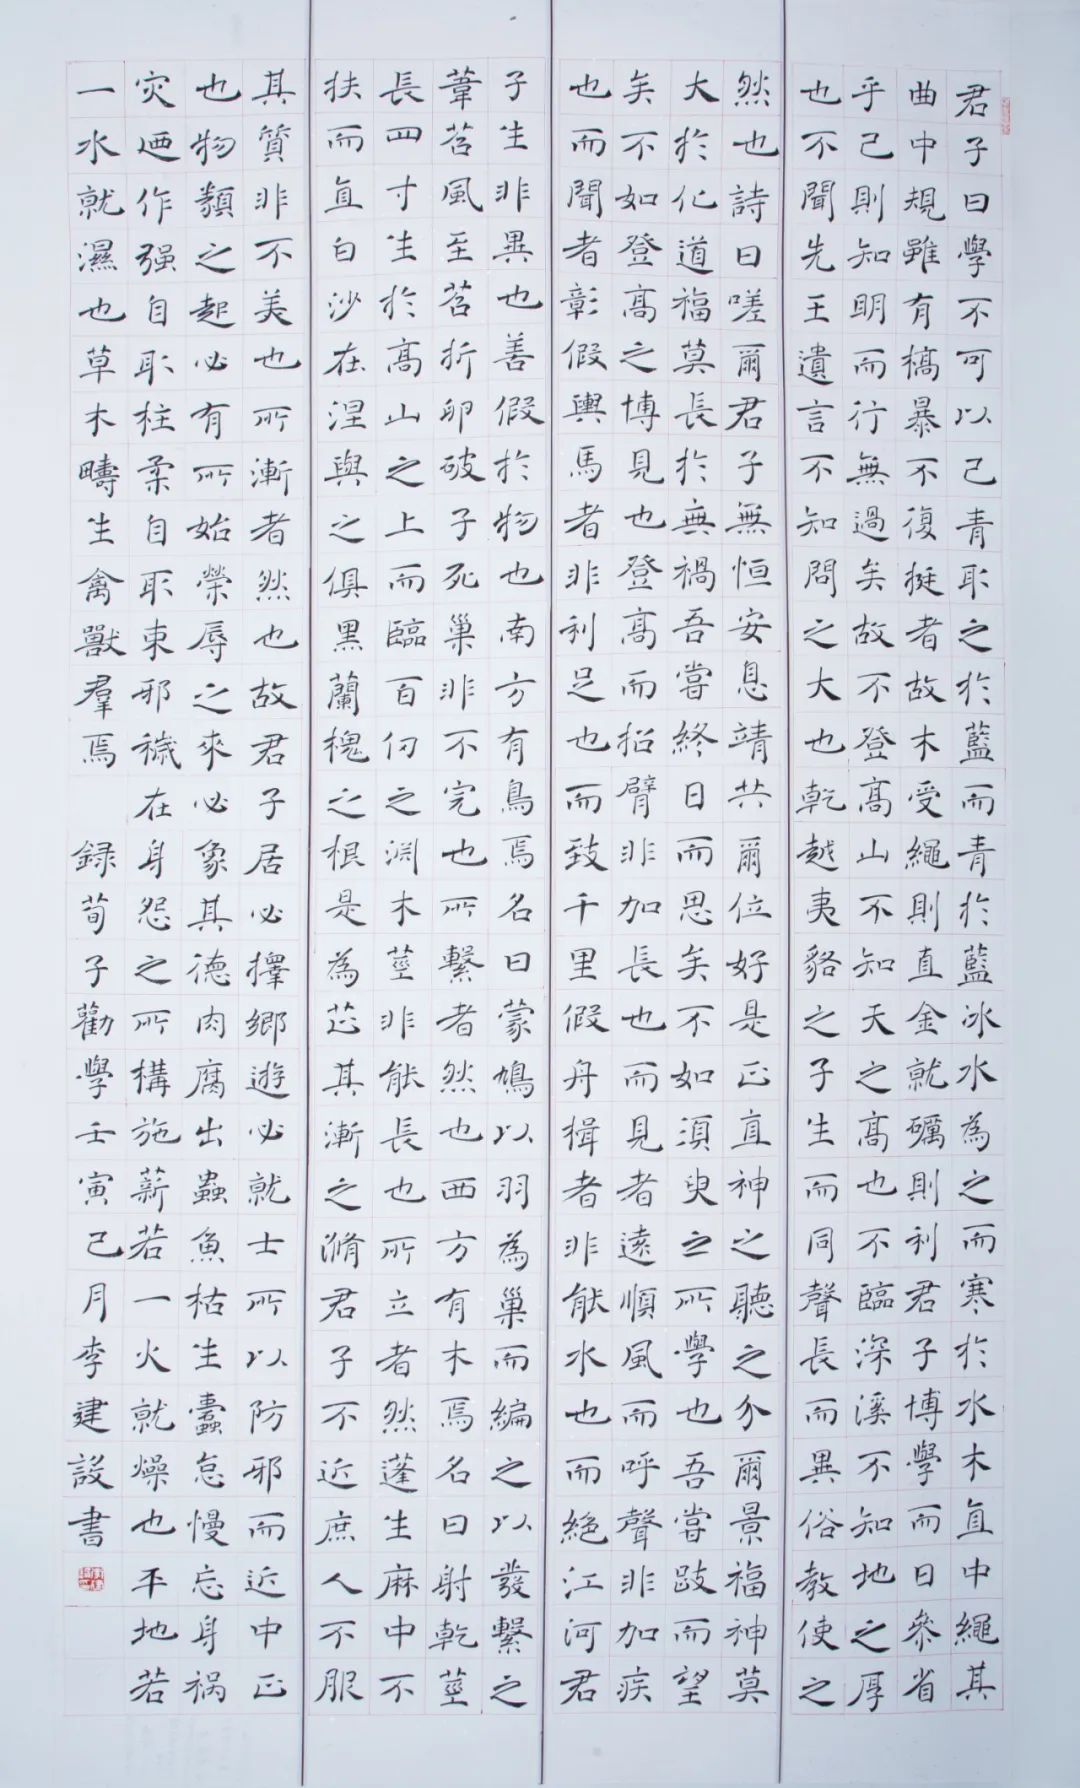 君子曰學不可以己青取之於藍而青於藍冰水為之而寒於水木直中繩其
曲中規雖有槁暴不復挺者故木受繩則直金就礪則利君子博學而日參省
乎己則知明而行無過矣故不登高山不知天之高也不臨深溪不知地之厚
也不聞先王遺言不知問之大也乾越夷貉之子生而同聲長而異俗教使之
然也詩曰嗟爾君子無恒安息靖共爾位好是正直神之聽之介爾景福神莫
大於化道福莫長於無禍吾嘗終日而思矣不如須臾之所學也吾嘗跂而望
矣不如登高之博見也登高而招臂非加長也而見者遠順風而呼聲非加疾
也而聞者彰假輿馬者非利足也而致千里假舟楫者非能水也而絕江河君
子生非異也善假於物也南方有鳥焉名曰蒙鳩以羽為巢而編之以發繫之
葦苕風至苕折卵破子死巢非不完也所繫者然也西方有木焉名曰射乾莖
長四寸生於高山之上而臨百仞之淵木莖非能長也所立者然蓬生麻中不
扶而直白沙在涅與之俱黑蘭槐之根是為芷其漸之滫君子不近庶人不服
其質非不美也所漸者然也故君子居必擇鄉遊必就士所以防邪而近中正
也物類之起必有所始榮辱之來必象其德肉腐出蟲魚枯生蠹怠慢忘身祸
灾迺作强自取柱柔自取束邪穢在身怨之所構施薪若一火就燥也平地若
一水就濕也草木疇生禽獸羣焉 録荀子勸學壬寅己月李建設書